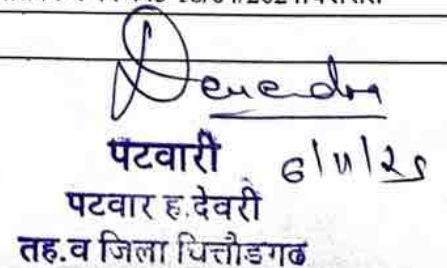 Devendra
पटवारी 6/11/25
पटवार ह.देवरी
तह.व जिला चित्तौडगढ